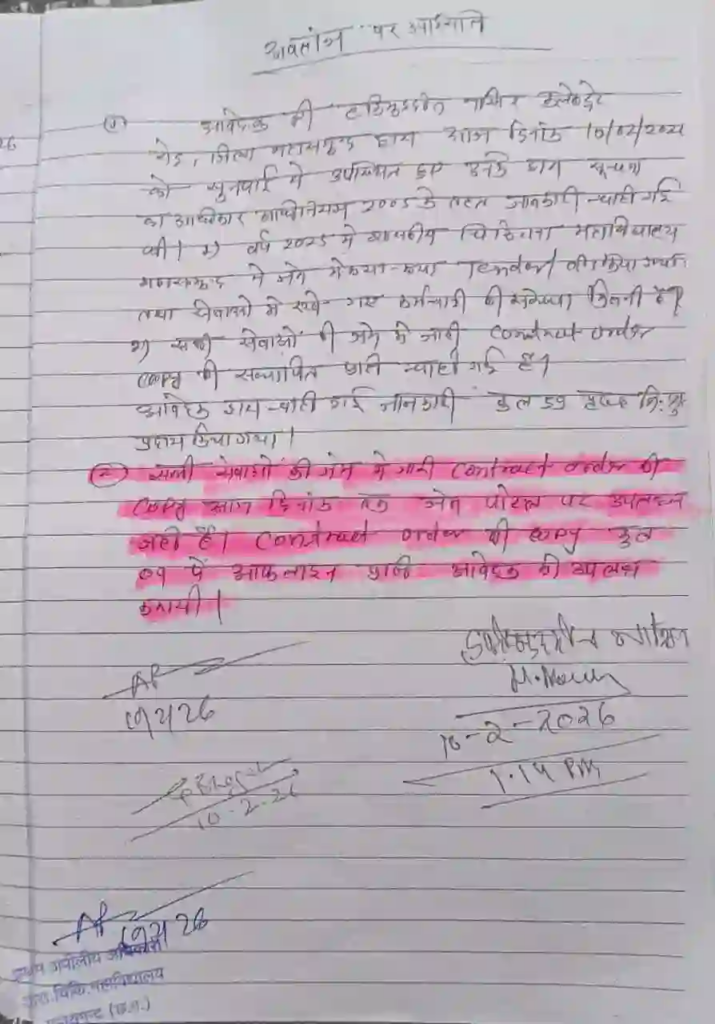 पर आपत्ति
① आवेदक श्री कलेक्टर
रोड, जिला महासमुन्द द्वारा आज दिनांक 10/02/2026
को सुनवाई में उपस्थित हुए उनके द्वारा सूचना
का अधिकार अधिनियम 2005 के तहत जानकारी चाही गई
थी। 1) वर्ष 2025 में शासकीय चिकित्सा महाविद्यालय
महासमुन्द में जेम में क्या-क्या Tender किया गया
तथा सेवाओं में रखे गए कर्मचारी की संख्या कितनी है?
2) सभी सेवाओं की जेम से जारी Contract order
copy की सत्यापित प्रति चाही गई है।
आवेदक द्वारा चाही गई जानकारी कुल 39 पृष्ठ
प्रदाय किया गया।
② सभी सेवाओं की जेम से जारी Contract order की
copy आज दिनांक तक जेम पोर्टल पर उपलब्ध
नहीं है। Contract order की copy कुल
09 पे आफलाइन प्रति आवेदक की उपलब्ध
करायी।
10-2-2026
1.14 PM
10.2.26
प्रथम अपीलीय अधिकारी
शास.चिकि.महाविद्यालय
महासमुन्द (छ.ग.)